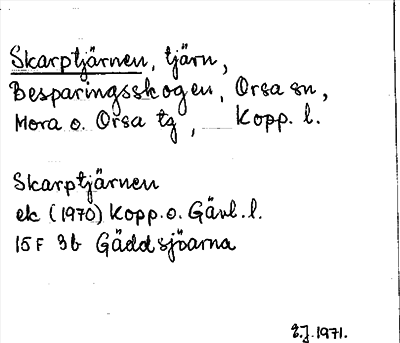 Skarptjärnen, tjärn,
Besparingsskogen, Orsa sn,
Mora o. Orsa tg, Kopp. l.
Skarptjärnen
ek (1970) Kopp. o. Gävl. l.
15F 9b Gäddsjöarna
E.J. 1971.